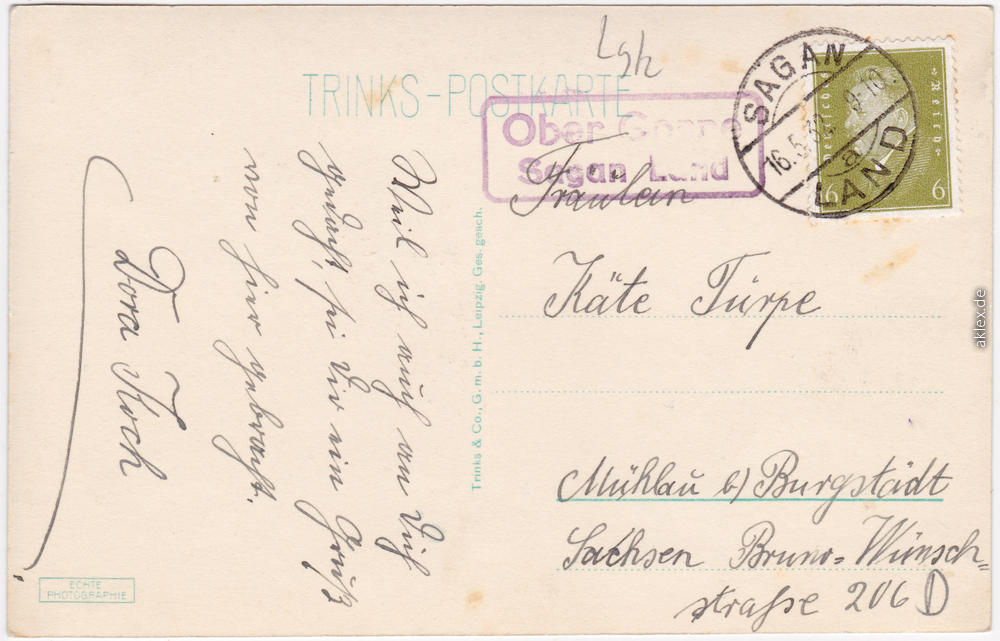 Lgh
TRINKS-POSTKARTE
Ober
Sagan Land
SAGAN
LAND
16.5.32. 9-10.
a
Deutsches Reich
6 6
Fräulein
Käte Türpe
Mühlau b/ Burgstädt
Sachsen Bruno=Wünsch=
strasse 206 D
Weil ich auch an Dich
gedacht, sei Dir ein Gruß
von hier gebracht.
Dora Koch
Trinks & Co., G. m. b. H., Leipzig. Ges. gesch.
ECHTE
PHOTOGRAPHIE
aklex.de